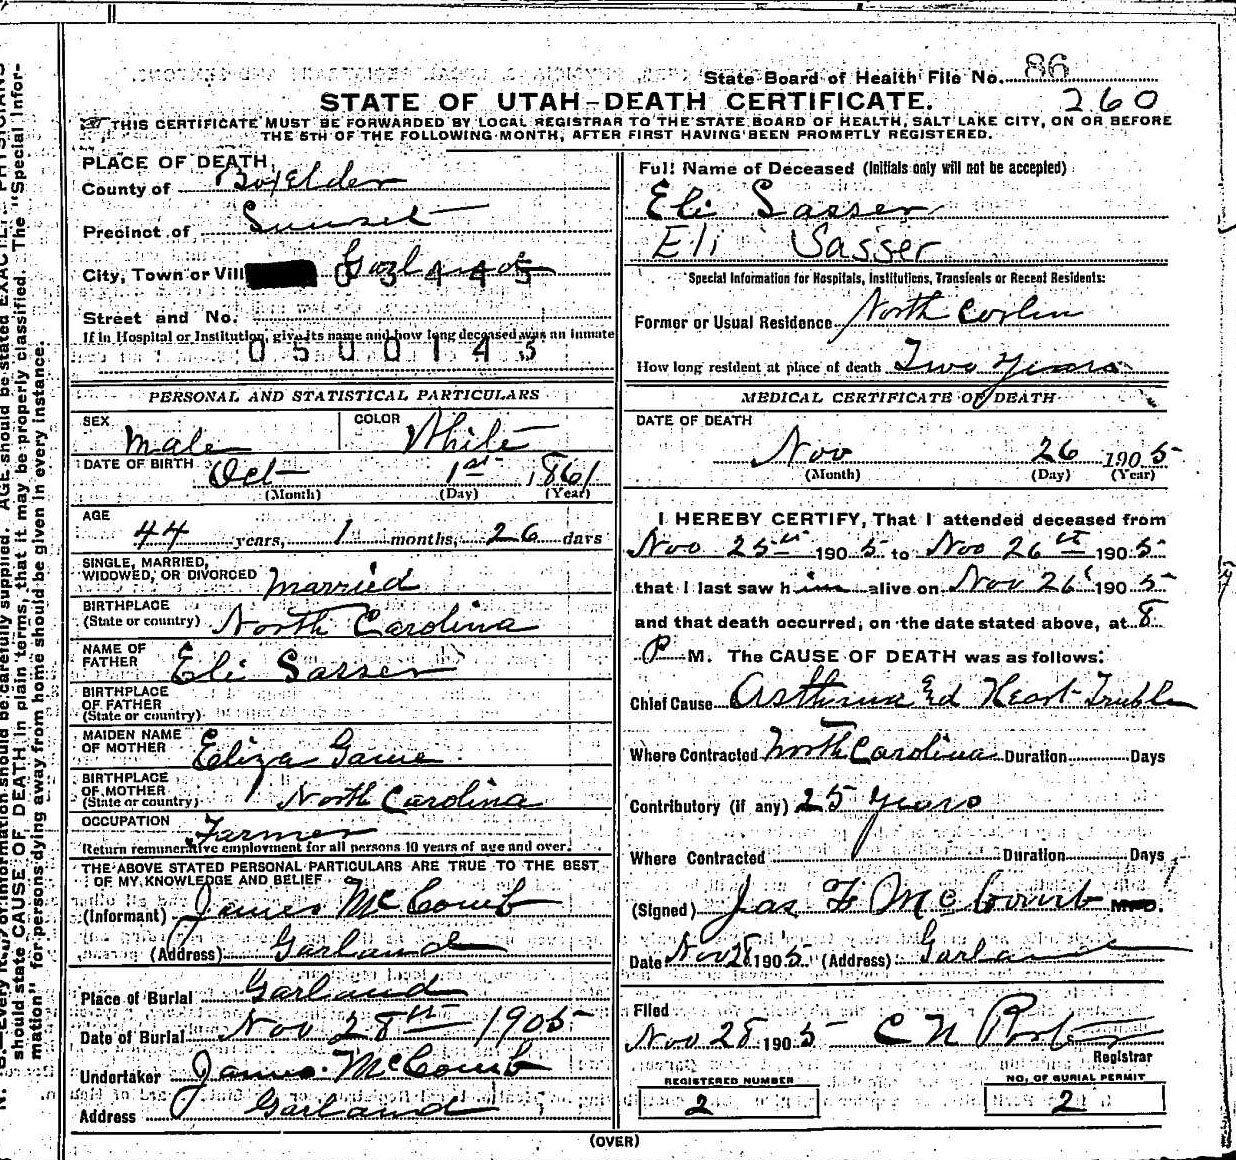 State Board of Health File No. 86
260
STATE OF UTAH-DEATH CERTIFICATE.
THIS CERTIFICATE MUST BE FORWARDED BY LOCAL REGISTRAR TO THE STATE BOARD OF HEALTH, SALT LAKE CITY, ON OR BEFORE
THE 5TH OF THE FOLLOWING MONTH, AFTER FIRST HAVING BEEN PROMPTLY REGISTERED.
PLACE OF DEATH
County of Box Elder
Precinct of Sunset
City, Town or Vill Garland
0 3 4 4 5
Street and No.
If in Hospital or Institution, give its name and how long deceased was an inmate
0 5 0 0 1 4 3
PERSONAL AND STATISTICAL PARTICULARS
SEX Male COLOR White
DATE OF BIRTH Oct 1st 1861
(Month) (Day) (Year)
AGE
44 years, 1 months, 26 days
SINGLE, MARRIED,
WIDOWED, OR DIVORCED married
BIRTHPLACE
(State or country) North Carolina
NAME OF
FATHER Eli Sasser
BIRTHPLACE
OF FATHER
(State or country)
MAIDEN NAME
OF MOTHER Eliza
BIRTHPLACE
OF MOTHER
(State or country) North Carolina
OCCUPATION Farmer
Return remunerative employment for all persons 10 years of age and over.
THE ABOVE STATED PERSONAL PARTICULARS ARE TRUE TO THE BEST
OF MY KNOWLEDGE AND BELIEF
(Informant) James McComb
(Address) Garland
Place of Burial Garland
Date of Burial Nov 28th 1905
Undertaker James McComb
Address Garland
Full Name of Deceased (Initials only will not be accepted)
Eli Sasser
Eli Sasser
Special Information for Hospitals, Institutions, Transients or Recent Residents:
Former or Usual Residence North
How long resident at place of death Two years
MEDICAL CERTIFICATE OF DEATH
DATE OF DEATH
Nov 26 1905
(Month) (Day) (Year)
I HEREBY CERTIFY, That I attended deceased from
Nov 25th 1905 to Nov 26th 1905
that I last saw him alive on Nov 26 1905
and that death occurred, on the date stated above, at 8
P M. The CAUSE OF DEATH was as follows:
Chief Cause Heart
Where Contracted North Carolina Duration Days
Contributory (if any) 25 years
Where Contracted Duration Days
(Signed) Jas F McComb M.D.
Date Nov 28 1905 (Address) Garland
Filed
Nov 28 1905 C N
Registrar
REGISTERED NUMBER
2
NO. OF BURIAL PERMIT
2
(OVER)
mation" for persons dying away from home should be given in every instance.